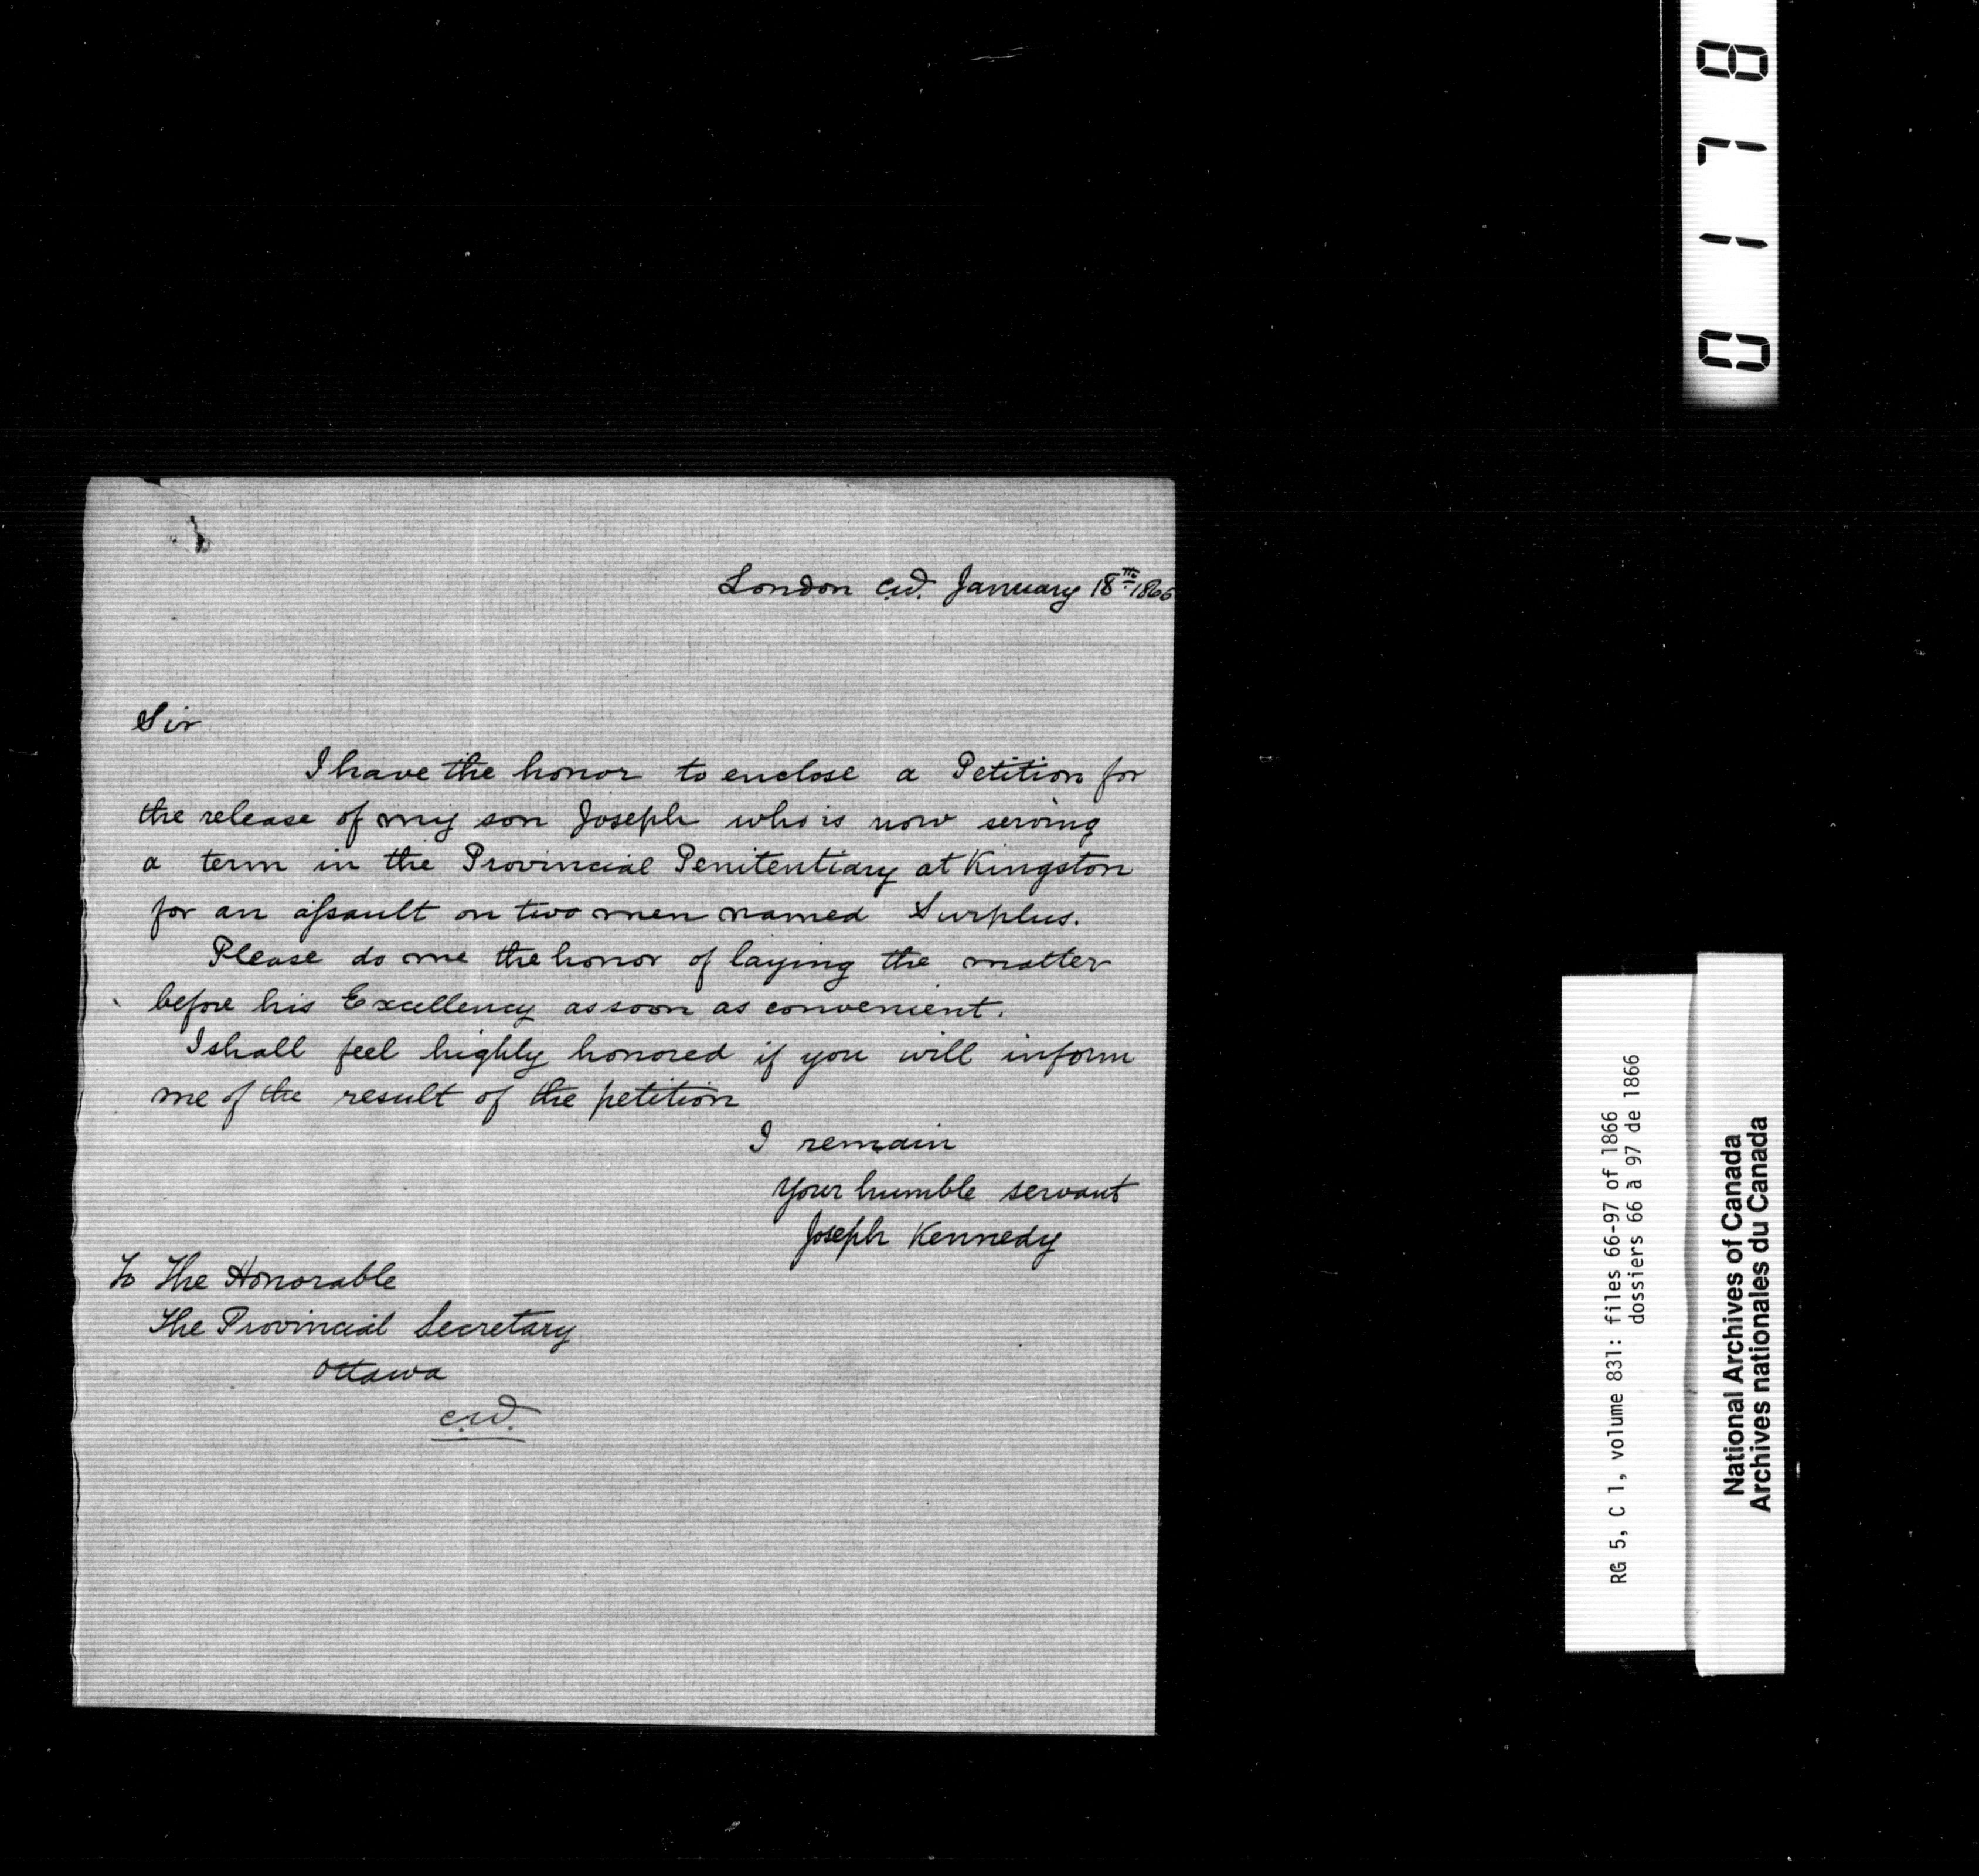 London C.W. January 18th 1866
Sir
I have the honor to enclose a Petition for
the release of my son Joseph who is now serving
a term in the Provincial Penitentiary at Kingston
for an aſsault on two men named Surplus.
Please do me the honor of laying the matter
before his Excellency as soon as convenient.
I shall feel highly honored if you will inform
me of the result of the petition
I remain
Your humble servant
Joseph Kennedy
To The Honorable
The Provincial Secretary
Ottawa
C.W.
0178
RG 5, C 1, volume 831: files 66-97 of 1866
dossiers 66 à 97 de 1866
National Archives of Canada
Archives nationales du Canada